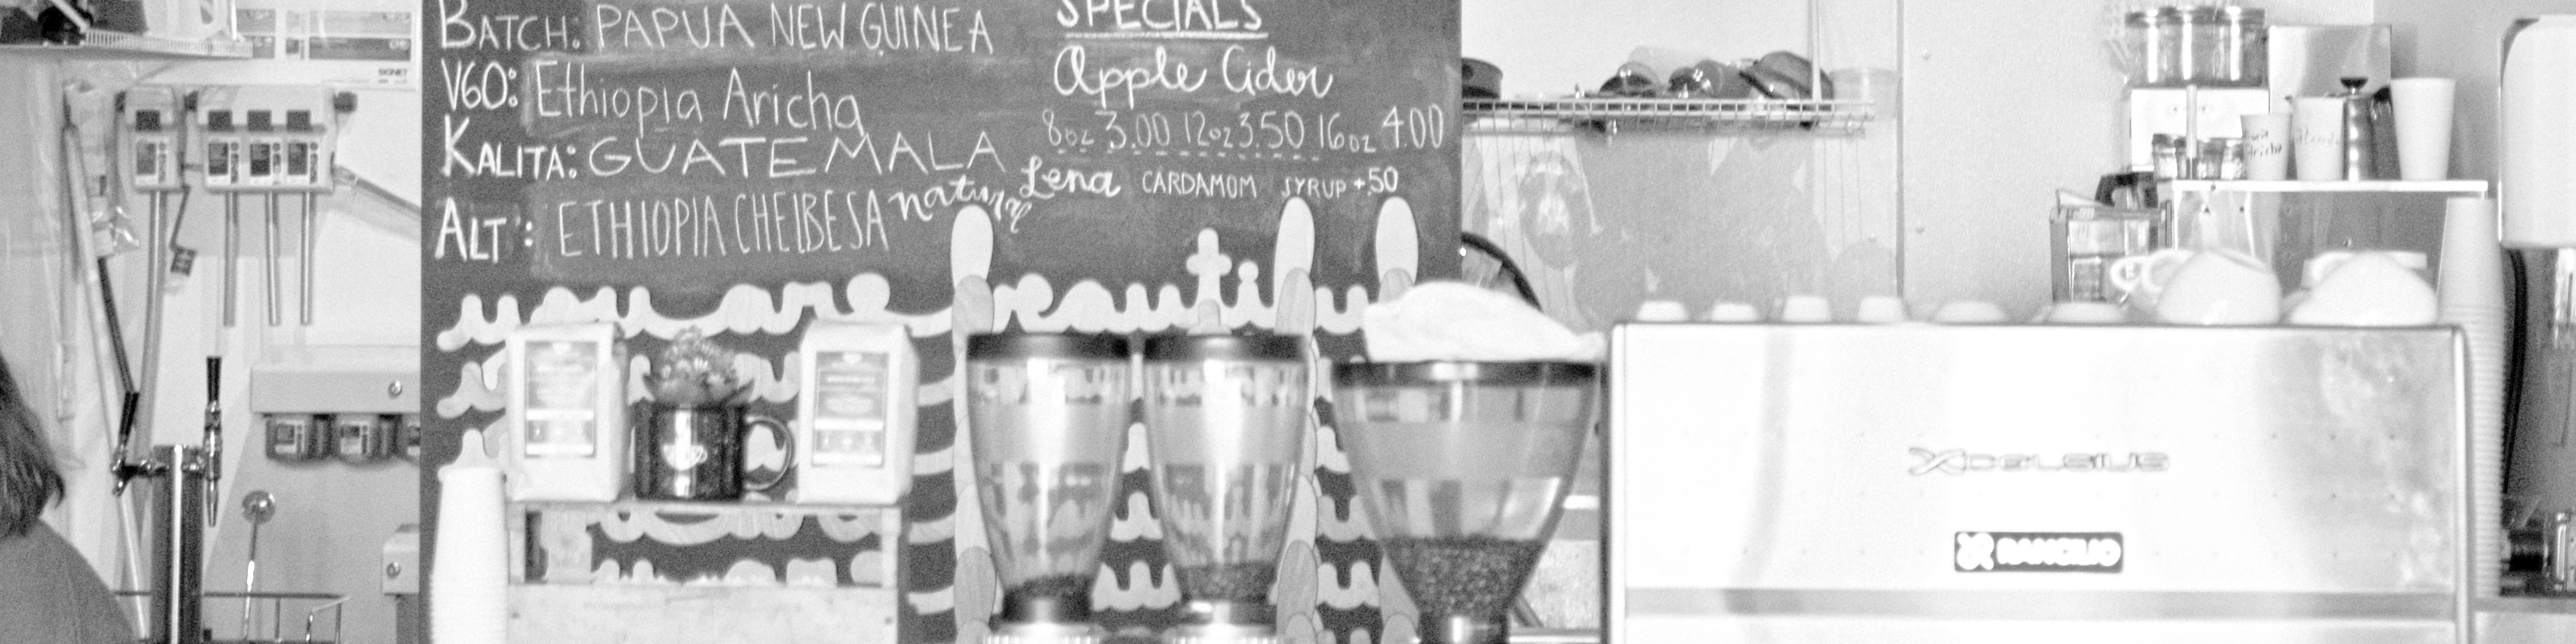 BATCH: PAPUA NEW GUINEA
V60: Ethiopia Aricha
KALITA: GUATEMALA
ALT: ETHIOPIA CHELBESA natural
SPECIALS
Apple Cider
8oz 3.00 12oz 3.50 16oz 4.00
Lena CARDAMOM SYRUP +.50
SIGNET
XCELSIUS
RANCILIO